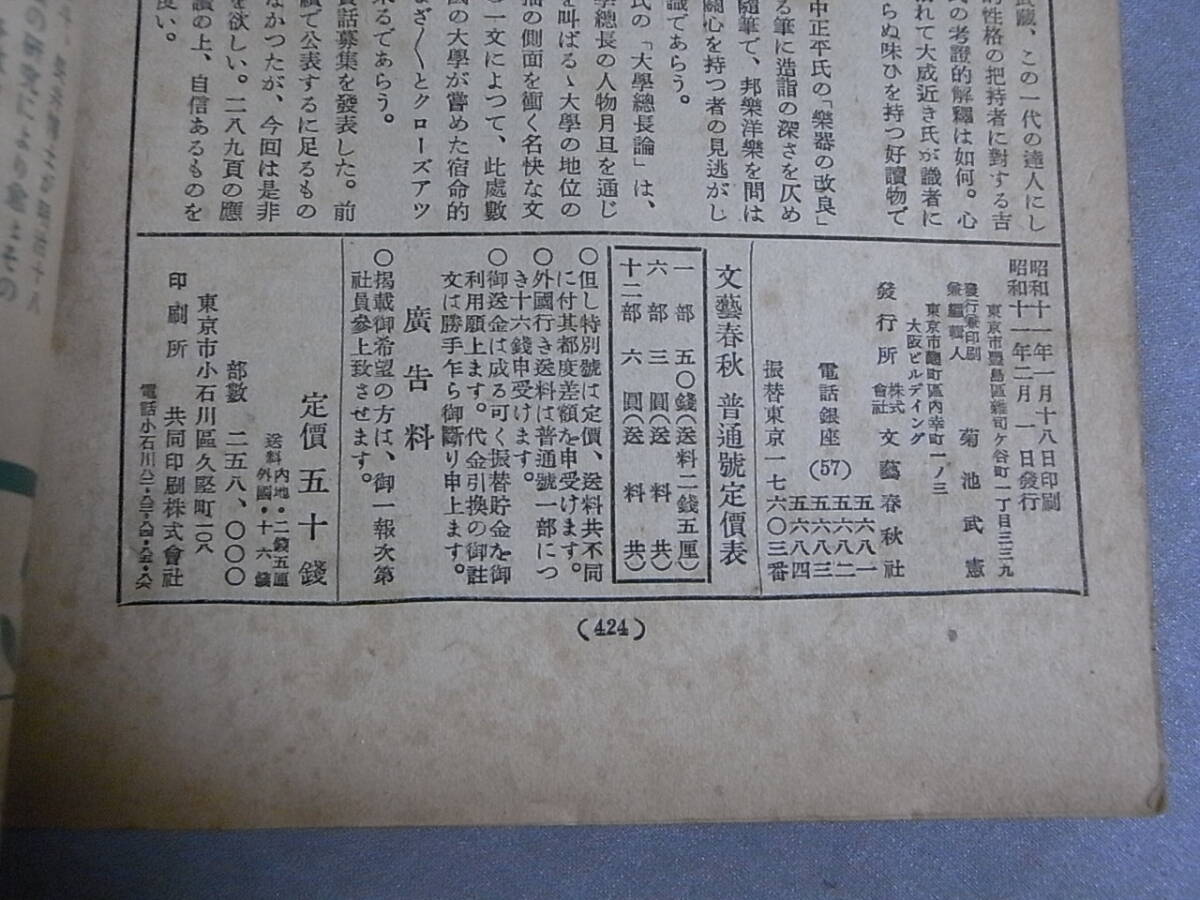 武藏、この一代の達人にし
的性格の把持者に對する吉
氏の考證的解釋は如何。心
れて大成近き氏が識者に
らぬ味ひを持つ好讀物で
中正平氏の「樂器の改良」
る筆に造詣の深さを仄め
隨筆で、邦樂洋樂を問は
關心を持つ者の見逃がし
識であらう。
氏の「大學總長論」は、
學總長の人物月旦を通じ
を叫ばるゝ大學の地位の
の側面を衝く名快な文
の一文によつて、此處數
國の大學が嘗めた宿命的
まざ〱とクローズアツ
來るであらう。
實話募集を發表した。前
續で公表するに足るもの
なかつたが、今回は是非
を欲しい。二八九頁の應
讀の上、自信あるものを
度い。
昭和十一年一月十八日印刷
昭和十一年二月一日發行
東京市豐島區雜司ケ谷町一丁目三三九
發行兼印刷兼編輯人 菊池武憲
東京市麴町區內幸町一ノ三
大阪ビルデイング
發行所 株式會社 文藝春秋社
電話銀座(57) 五六八一 五六八二 五六八三 五六八四
振替東京一七六〇三番
文藝春秋 普通號定價表
一部 五〇錢(送料二錢五厘)
六部 三圓(送料共)
十二部 六圓(送料共)
〇但し特別號は定價、送料共不同
に付其都度差額を申受けます。
〇外國行き送料は普通號一部につ
き十六錢申受けます。
〇御送金は成る可く振替貯金を御
利用願上ます。代金引換の御註
文は勝手乍ら御斷り申上ます。
廣告料
〇揭載御希望の方は、御一報次第
社員參上致させます。
定價五十錢
送料 內地・二錢五厘 外國・十六錢
部數 二五八、〇〇〇
東京市小石川區久堅町一〇八
印刷所 共同印刷株式會社
電話小石川八二・八三・八四・八五・八六
(424)
の研究により